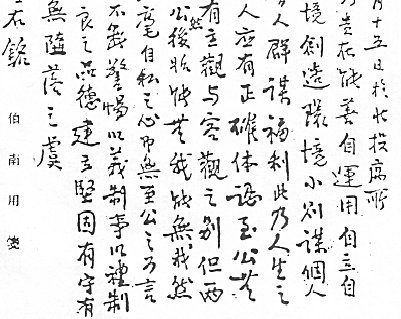 月十五日於北投寓所
乃貴在能善自運用自立自
境創造環境小則謀個人
人群謀福利此乃人生之
人應有正確体認至公無
有主觀与客觀之別但兩
公後始能無我能無我然
毫自私之心而無至公之可言
不無警惕以義制事以禮制
良之品德建立堅固有守有
無隕落之虞
右銘
伯南用箋